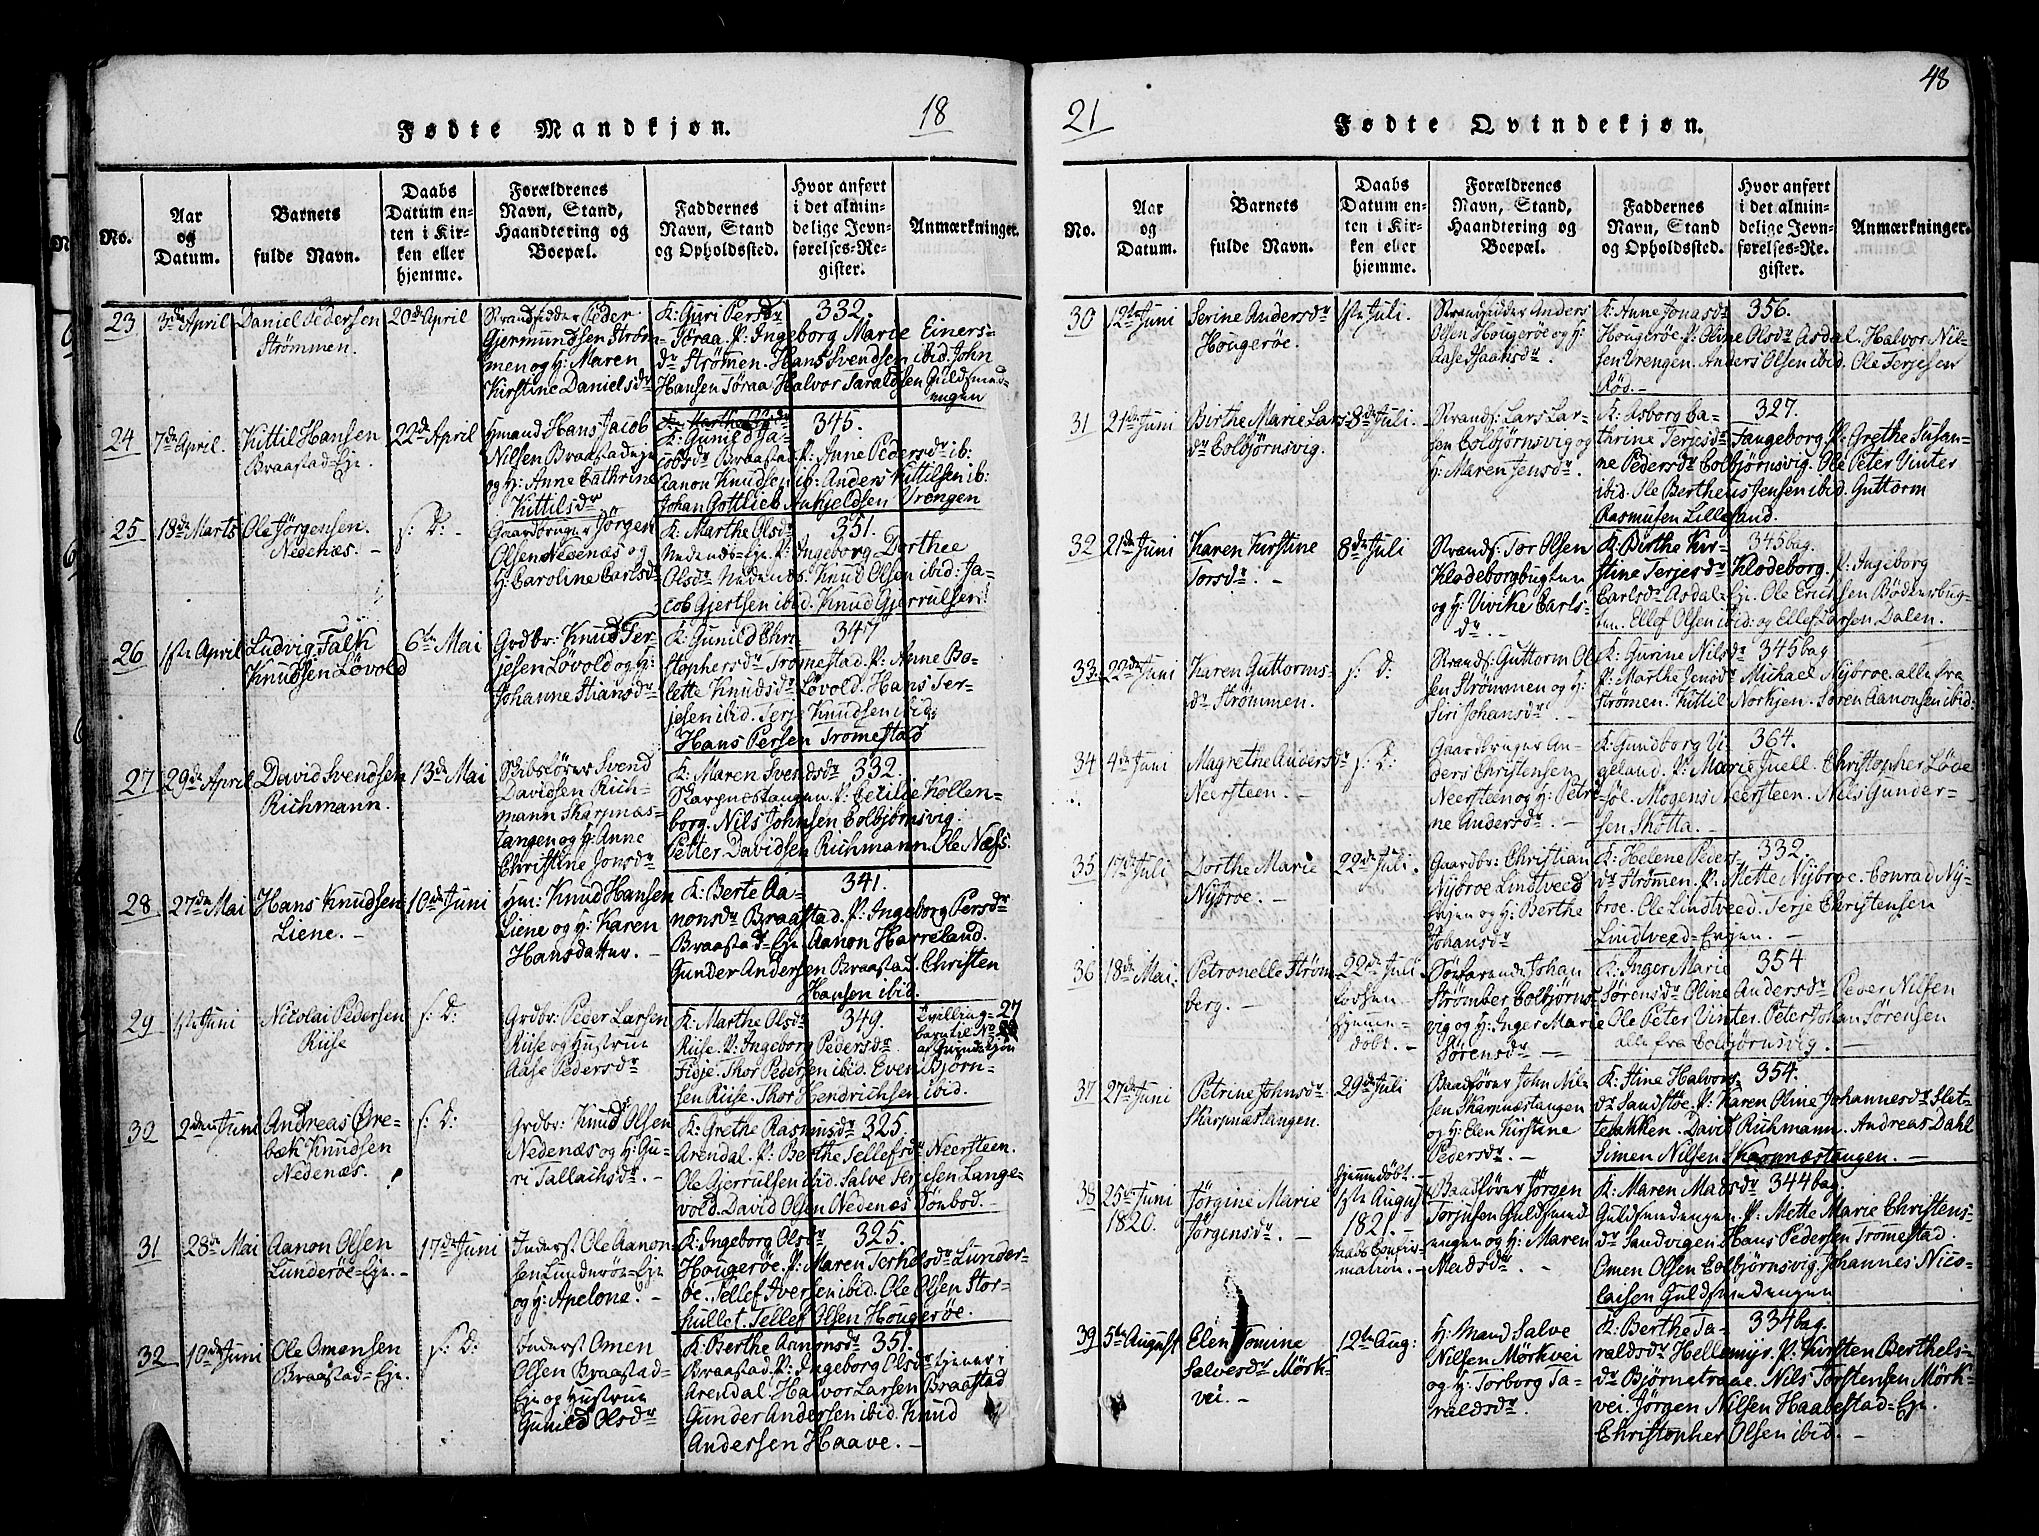 18
Fødte Mandkjøn.
No.
Aar
og
Datum.
Barnets
fulde Navn.
Daabs
Datum en-
ten i Kir-
ken eller
hjemme.
Forældrenes
Navn, Stand,
Haandtering og
Boepæl.
Faddernes
Navn, Stand
og Opholdssted.
Hvor anført
i det almin-
delige Jevn-
førelses-Re-
gister.
Anmærkninger.
23
3de April
Daniel Pedersen
Strømmen.
20de April
Strandsidder Peder
Gjermundsen Strøm-
men og H: Maren
Kirstine Danielsdr
K: Guri Persdr
332.
Tøraa. P: Ingeborg Marie Einers-
dr Strømen. Hans Svendsen ibid. John
Hansen Tøraa. Halvor Taraldsen Guldsmed-
engen
24
7de April.
Kittil Hansen
Braastad-Eje.
22de April
Hmand Hans Jacob
Nilsen Braastad-eje
og H: Anne Cathrine
Kittilsdr
345.
K: Gunild Ja-
cobsdr Braastad P: Anne Pedersdr ib:
Aanon Knudsen ib: Anders Kittilsen ib:
Johan Gottlieb Ankjeldsen Vrengen
25
18de Marts
Ole Jørgensen
Nedenæs. -
s: D:
Gaardbruger Jørgen
Olsen Nedenæs og
H: Caroline Carlsdr
K: Marthe Olsdr
351.
Nedenæs-Eje. P: Ingeborg Dorthee
Olsdr Nedenæs. Knud Olsen ibid: Ja-
cob Gjertsen ibid. Knud Gjerrulsen.
26
1ste April
Ludvig Falk
Knudsen Løvold
6te Mai
Grdbr: Knud Ter-
jesen Løvold og H:
Johanne Stiansdr
K: Gunild Chri-
347
stophersdr Tromestad. P: Anne Bo-
lette Knudsdr Løvold. Hans Ter-
jesen ibid. Terje Knudsen ibid:
Hans Persen Tromestad
27
29de April
David Svendsen
Richmann.
13de Mai
Skibsfører Svend
Davidsen Rich-
mann Skarpnæs-
tangen og H: Anne
Christine Jonsdr
K: Maren Svendsdr
332.
Skarpnæstangen. P: Cecilie Kollen-
borg. Nils Johnsen Colbjørnsvig.
Petter Davidsen Richmann. Ole Næss.
28
27de Mai
Hans Knudsen
Liene. -
10de Juni
Hm: Knud Hansen
Liene og H: Karen
Hansdatter. -
K: Berte Aa-
341.
nonsdr Braastad. P: Ingeborg Persdr
Braastad-Eje Aanon Harreland.
Gunder Andersen Braastad. Christen
Hansen ibid.
29
1ste Juni
Nicolai Pedersen
Riise
s: D:
Grdbr: Peder Larsen
Riise og Hustrue
Aase Pedersdr
K: Marthe Olsdr
349.
Riise. P: Ingeborg Pedersdr
Fidje. Thor Pedersen ibid. Even Bjørn-
sen Riise. Thor Hendrichsen ibid.
Tvilling-
barn til No 27
af Qvindekjøn
30
2den Juni
Andreas Ore-
bæk Knudsen
Nedenæs.
s: D:
Grdbr: Knud Olsen
Nedenæs og H: Gu-
ri Tallachsdr. -
K: Grethe Rasmusdr
325.
Arendal. P: Berthe Tellefsdr Neersteen.
Ole Gjerrulsen ibid. Salve Terjesen Lange-
vold. David Olsen Nedenæs Sønbod.
31
28de Mai
Aanon Olsen
Lunderøe-Eje. -
17de Juni
Inderst Ole Aanon-
sen Lunderøe-Eje
og H: Apelone. -
K: Ingeborg Olsdr
325.
Hougerøe. P: Maren Terkelsdr Lunder-
øe. Tellef Iversen ibid. Ole Olsen Stor-
hullet. Tellef Olsen Hougerøe.
32
10de Juni
Ole Omensen
Braastad-Eje.
s: D:
Inderst Omen
Olsen Braastad-
Eje og Hustrue
Gunild Olsdr
K: Berthe Aanonsdr
351.
Braastad. P: Ingeborg Olsdr tjener i
Arendal. Halvor Larsen Braastad
Gunder Andersen ibid. Knud
Andersen Haave. -
21
48
Fødte Qvindekjøn.
No.
Aar
og
Datum.
Barnets
fulde Navn.
Daabs
Datum en-
ten i Kir-
ken eller
hjemme.
Forældrenes
Navn, Stand,
Haandtering og
Boepæl.
Faddernes
Navn, Stand
og Opholdssted.
Hvor anført
i det almin-
delige Jevn-
førelses-Re-
gister.
Anmærkninger.
30
12te Juni
Serine Andersdr
Hougerøe.
1ste Juli.
Strandsidder Anders
Olsen Hougerøe og H:
Aase Isaachsdr.
K: Anne Jonasdr
356.
Hougerøe. P: Oline Olsdr Asdal. Halvor Nil-
sen Vrengen. Anders Olsen ibid. Ole Terjesen
Røs. -
31
21de Juni
Birthe Marie Lars-
dr Colbjørnsvig.
8de Juli.
Strands: Lars Lar-
sen Colbjørnsvig og
H: Maren Jensdr.
K: Asborg Ca-
327.
thrine Terjesdr Tangeborg. P: Grethe Susan-
ne Pedersdr Colbjørnsvig. Ole Peter Vinter
ibid. Ole Bertheus Jensen ibid. Guttorm
Rasmusen Lillesand.
32
21de Juni
Karen Kirstine
Torsdr. -
8de Juli
Strands: Tor Olsen
Klodeborgbugten
og H: Vivike Carls-
dr. -
K: Birthe Kir-
345 bag.
stine Terjesdr Klodeborg. P: Ingeborg
Carlsdr Asdal-Eje. Ole Ericksen Bødkerbug-
ten. Ellef Olsen ibid: og Ellef Larsen Dalen.
33
22de Juni
Karen Guttorms-
dr Strømmen.
s: D:
Strands: Guttorm Ol-
sen Strømmen og H:
Siri Johansdr. -
K: Gurine Nilsdr
345 bag
P: Marthe Jensdr Michael Nybroe. alle fra
Strømen. Kittil Norkjen. Søren Aanonsen ibid:
34
4de Juni
Magrethe Andersdr
Neersteen. -
s: D:
Gaardbruger An-
ders Christensen
Neersteen og H: Petri-
ne Andersdr. -
K: Gundborg Vi-
364.
geland. P: Marie Juell. Christopher Løve
søl. Mogens Neersteen. Nils Gunder-
sen Skotta. -
35
17de Juli
Dorthe Marie
Nybroe. -
22de Juli.
Gaardbr: Christian
Nybroe Lindtveed
Engen og H: Berthe
Johansdr
K: Helene Peders-
332.
dr Strømen. P: Mette Nybroe. Conrad Ny-
broe. Ole Lindtveed. Terje Christensen
Lindtveed-Engen. -
36
18de Mai.
Petronelle Strøm-
berg. -
22de Juli
hjemme-
døbt. -
Søfarende Johan
Strømber Colbjørns-
vig og H: Inger Marie
Sørensdr -
K: Inger Marie
354
Sørensdr Oline Andersdr Peder Nilsen
Ole Peter Vinter. Peter Johan Sørensen
alle fra Colbjørnsvig. -
37
27de Juni
Petrine Johnsdr
Skarpnæstangen.
29de Juli
Baadfører John Nil-
sen Skarpnæstangen
og H: Elen Kirstine
Pedersdr. -
K: Stine Halvors-
354.
dr Sandstøe. P: Karen Oline Johannesdr Slet-
tebakken. David Richmann. Andreas Dahl
Simen Nilsen Skarpnæstangen. -
38
25de Juni
1820.
Jørgine Marie
Jørgensdr. -
hjemmedøbt.
1ste August
1821.
Daabs Confir-
mation. -
Baadfører Jørgen
Torjusen Guldsmed
engen og H: Maren
Madsdr. -
K: Maren Madsdr
344 bag.
Guldsmedengen. P: Mette Marie Christens-
dr Sandvigen. Hans Pedersen Tromestad.
Omen Olsen Colbjørnsvig. Johannes Nico-
laisen Guldsmedengen
39
5te August
Elen Tomine
Salvesdr Mørk-
vei. -
12te Aug:
H: Mand Salve
Nilsen Mørkvei
og H: Torborg Ta-
raldsdr.
K: Berthe Ta-
334 bag.
raldsdr Hellemyr. P: Kirsten Berthels-
dr Bjørnetraae. Nils Torstensen Mørk-
vei. Jørgen Nilsen Haabestad-Eje.
Christopher Olsen ibid. -